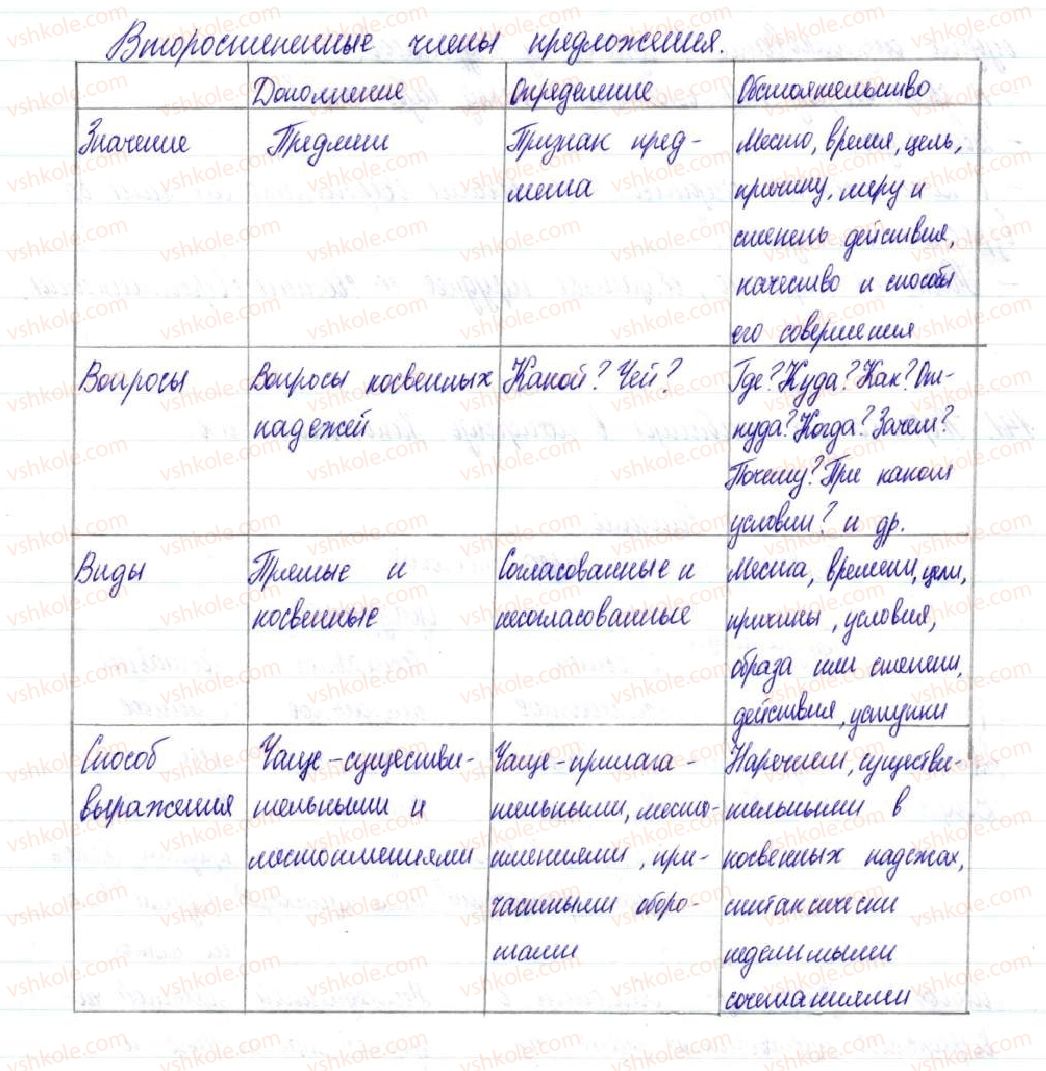 Второстепенные члены предложения.
Дополнение Определение Обстоятельство
Значение Предмет Признак пред-
мета
Место, время, цель,
причину, меру и
степень действия,
качество и способы
его совершения
Вопросы Вопросы косвенных
падежей
Какой? Чей?
Где? Куда? Как? От-
куда? Когда? Зачем?
Почему? При каком
условии? и др.
Виды Прямые и
косвенные
Согласованные и
несогласованные
Места, времени, цели,
причины, условия,
образа или степени,
действия, уступки
Способ
выражения
Чаще - существи-
тельными и
местоимениями
Чаще - прилага-
тельными, место-
имениями, при-
частными оборо-
тами
Наречием, существи-
тельными в
косвенных падежах,
синтаксически
неделимыми
сочетаниями
vshkole.com